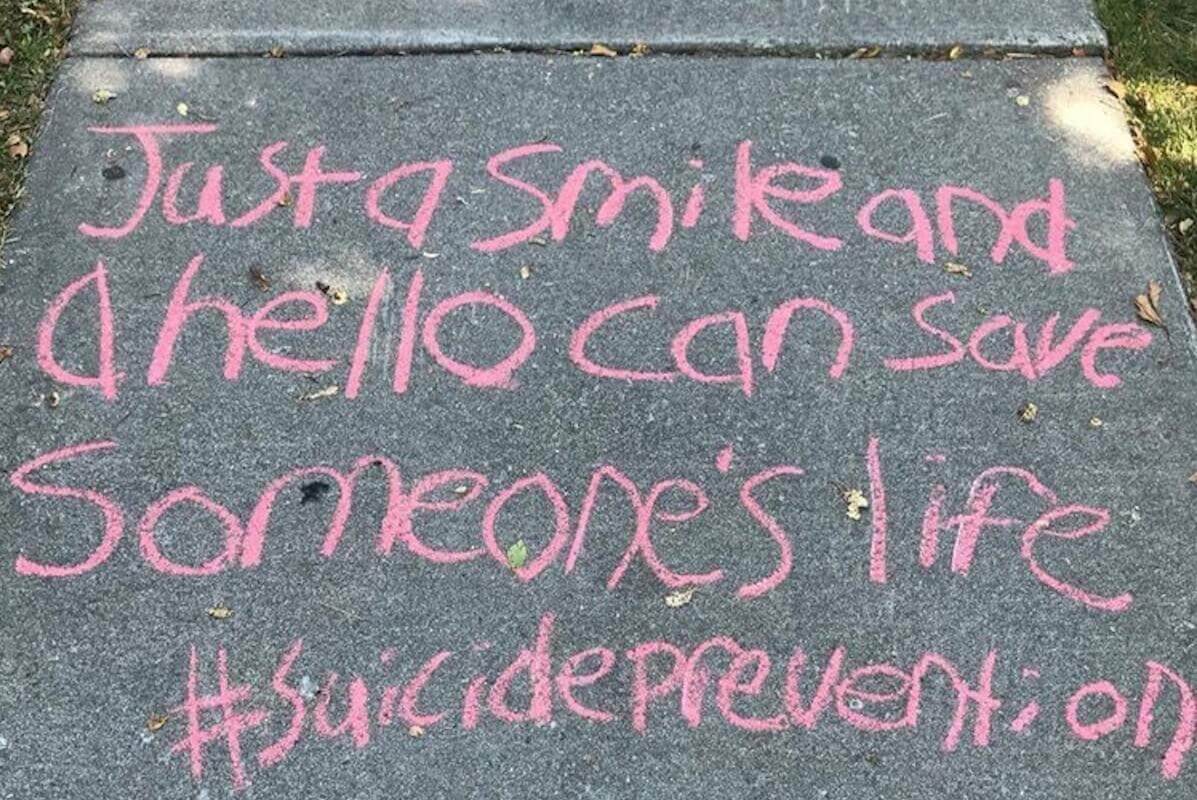 Just a smile and
a hello can save
Someone's life
#suicideprevention